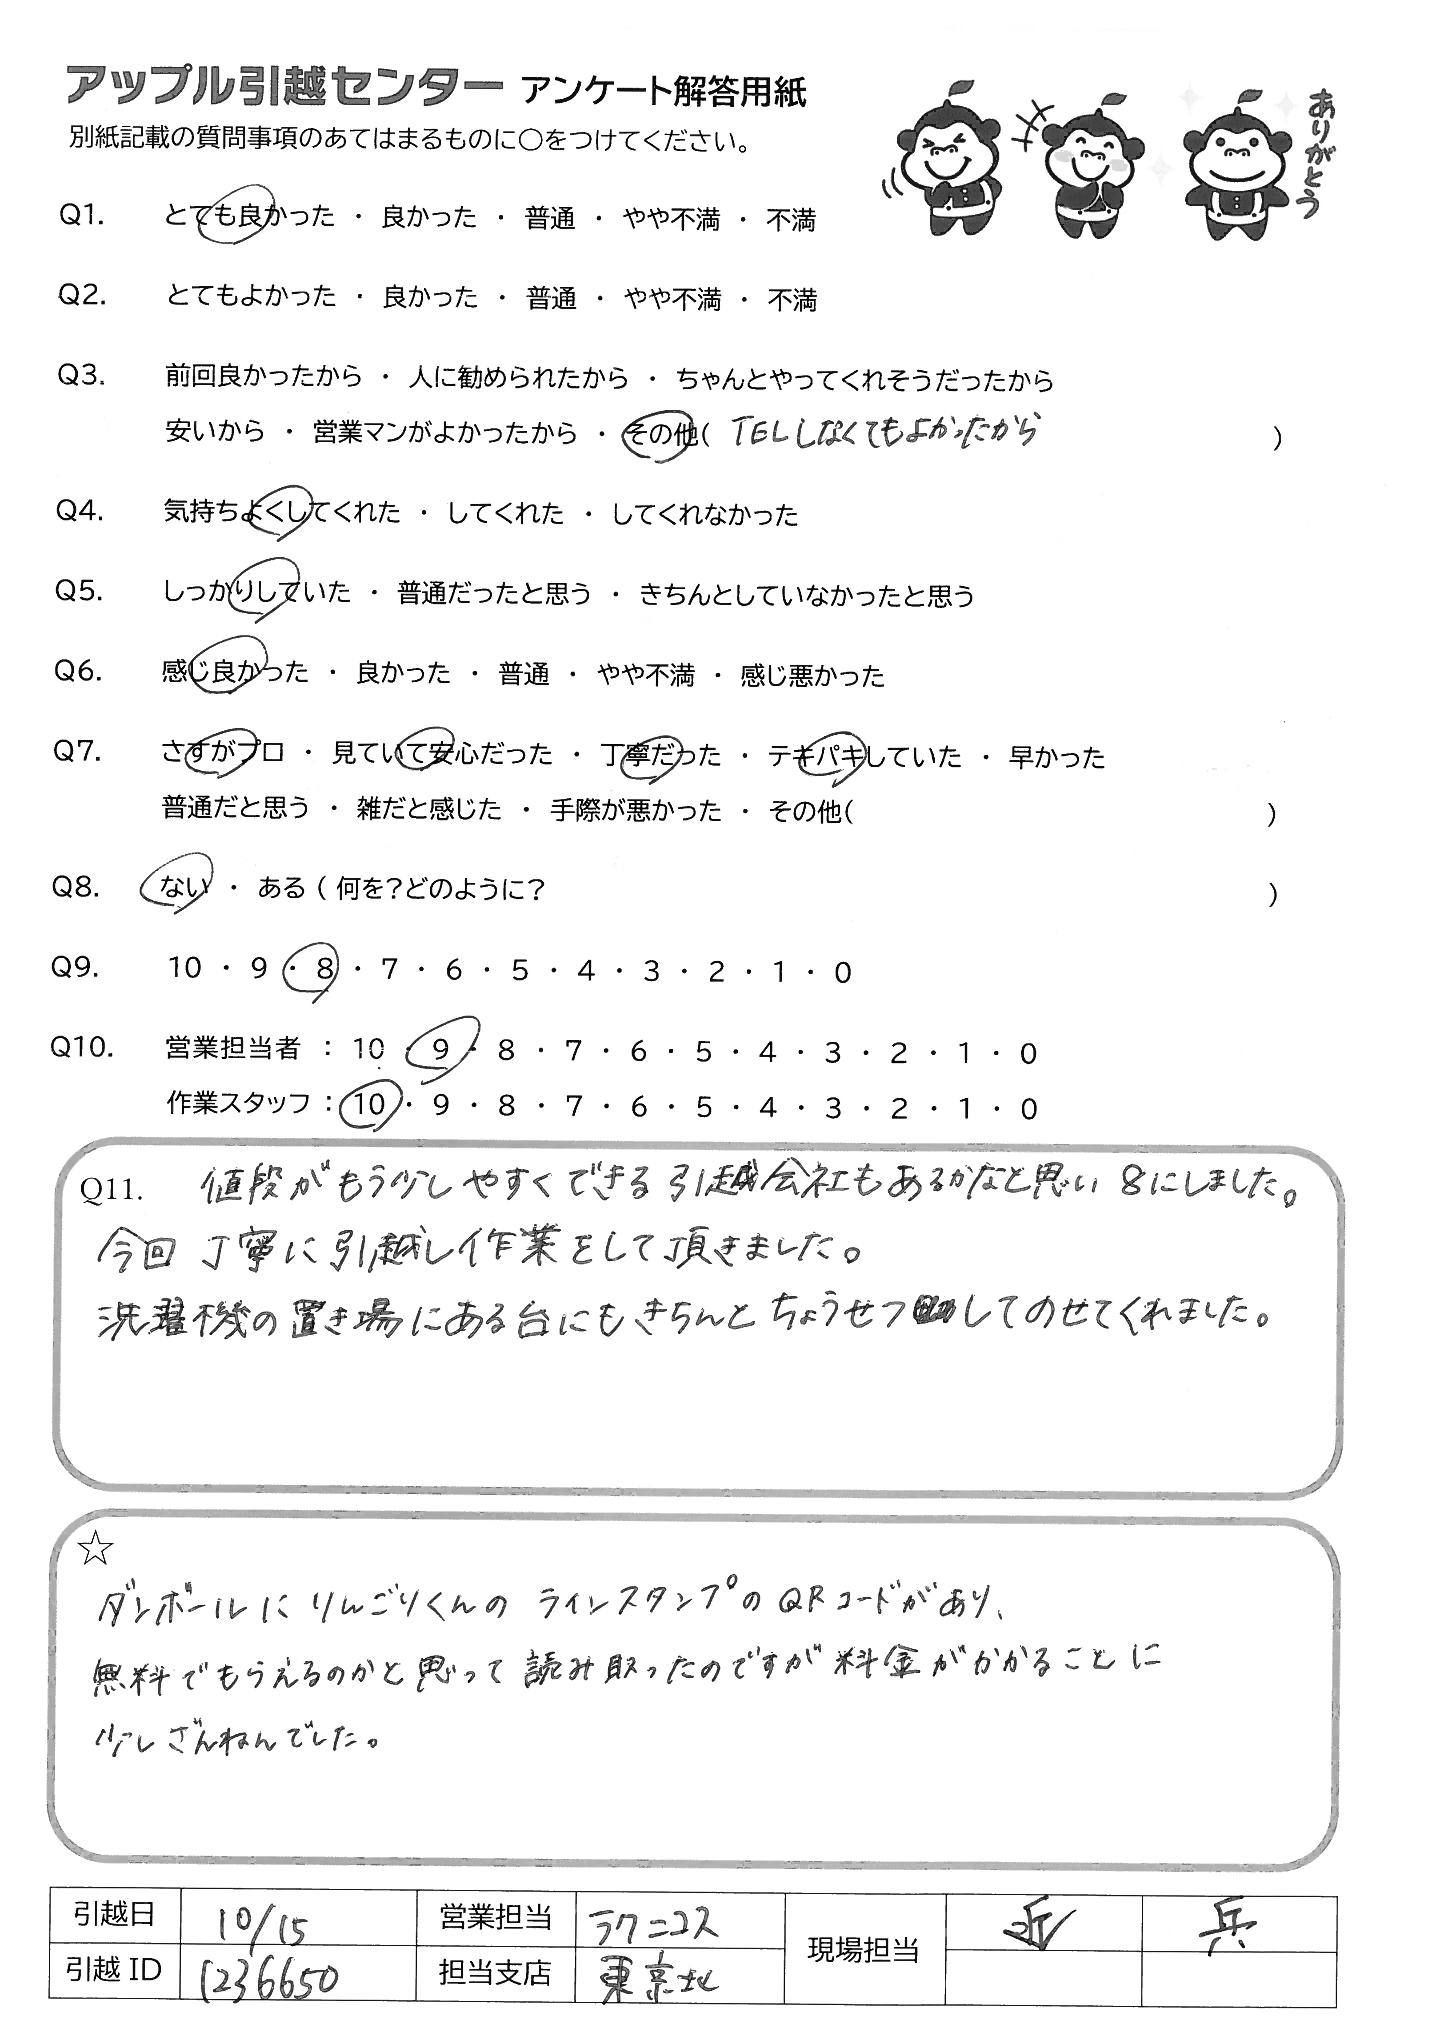 アップル引越センター アンケート解答用紙
別紙記載の質問事項のあてはまるものに○をつけてください。
ありがとう
Q1. とても良かった ・ 良かった ・ 普通 ・ やや不満 ・ 不満
Q2. とてもよかった ・ 良かった ・ 普通 ・ やや不満 ・ 不満
Q3. 前回良かったから ・ 人に勧められたから ・ ちゃんとやってくれそうだったから
安いから ・ 営業マンがよかったから ・ その他( TELしなくてもよかったから )
Q4. 気持ちよくしてくれた ・ してくれた ・ してくれなかった
Q5. しっかりしていた ・ 普通だったと思う ・ きちんとしていなかったと思う
Q6. 感じ良かった ・ 良かった ・ 普通 ・ やや不満 ・ 感じ悪かった
Q7. さすがプロ ・ 見ていて安心だった ・ 丁寧だった ・ テキパキしていた ・ 早かった
普通だと思う ・ 雑だと感じた ・ 手際が悪かった ・ その他( )
Q8. ない ・ ある ( 何を?どのように? )
Q9. 10 ・ 9 ・ 8 ・ 7 ・ 6 ・ 5 ・ 4 ・ 3 ・ 2 ・ 1 ・ 0
Q10. 営業担当者 : 10 ・ 9 ・ 8 ・ 7 ・ 6 ・ 5 ・ 4 ・ 3 ・ 2 ・ 1 ・ 0
作業スタッフ : 10 ・ 9 ・ 8 ・ 7 ・ 6 ・ 5 ・ 4 ・ 3 ・ 2 ・ 1 ・ 0
Q11. 値段がもう少しやすくできる引越会社もあるかなと思い 8にしました。
今回 丁寧に引越し作業をして頂きました。
洗濯機の置き場にある台にもきちんとちょうせつしてのせてくれました。
☆
ダンボールにりんごりくんのラインスタンプのQRコードがあり、
無料でもらえるのかと思って読み取ったのですが料金がかかることに
少しざんねんでした。
引越日 10/15 営業担当 ラクニコス 現場担当 近 兵
引越ID 1236650 担当支店 東京北